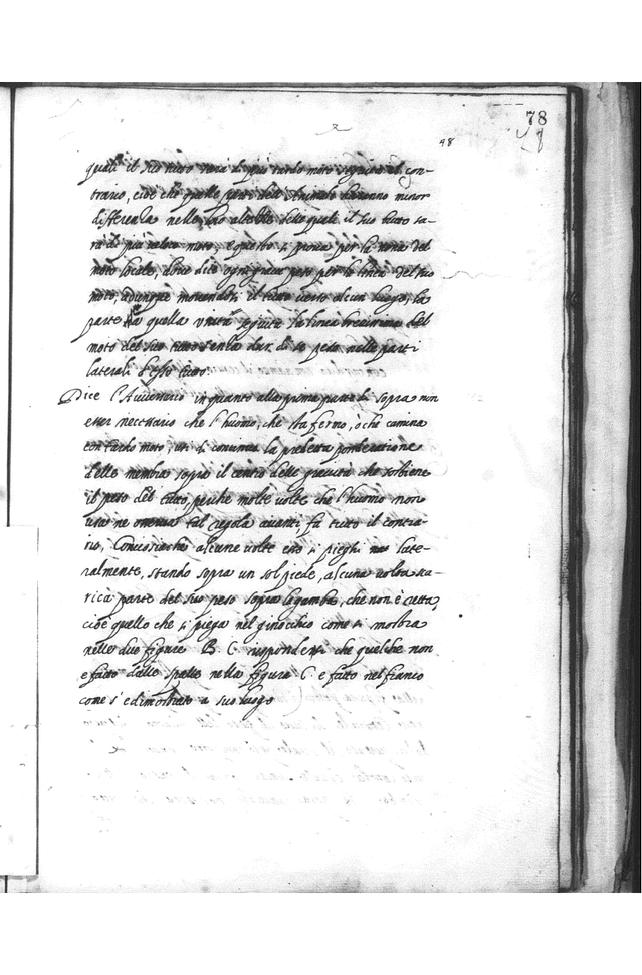 78
48
quali il suo tutto sarà di più tardo moto seguita il con-
trario, cioè che quelle parti dell'Animale haranno minor
differenza nelle loro altezze delle quali il suo tutto sa-
rà di più veloce moto, e questo si prova per la nona del
moto locale, dove dice ogni grave pesa per la linea del suo
moto, adunque movendosi il tutto verso alcun luogo, la
parte a quella unita seguita la linea brevissima del
moto del suo tutto senza dar di se peso nelle parti
laterali d'esso tutto.
Dice l'Avversario in quanto alla prima parte di sopra non
esser necessario che l'huomo, che sta fermo, ò che camina
con tardo moto, usi di continua la predetta ponderatione
delle membra sopra il centro delle gravità che sostiene
il peso del tutto, perche molte volte che l'huomo non
usa ne tal regola avanti fà tutto il contra-
rio, Conciosiache alcune volte esso si pieghi late-
ralmente, stando sopra un sol piede, alcuna volta sca-
rica parte del suo peso sopra la gamba, che non è retta,
cioè quello che si piega nel ginocchio come si mostra
nelle due figure B. C. rispondesi che quel che non
e fatto dalle spalle nella figura C. e fatto nel fianco
come s'è dimostrato a suo luogo